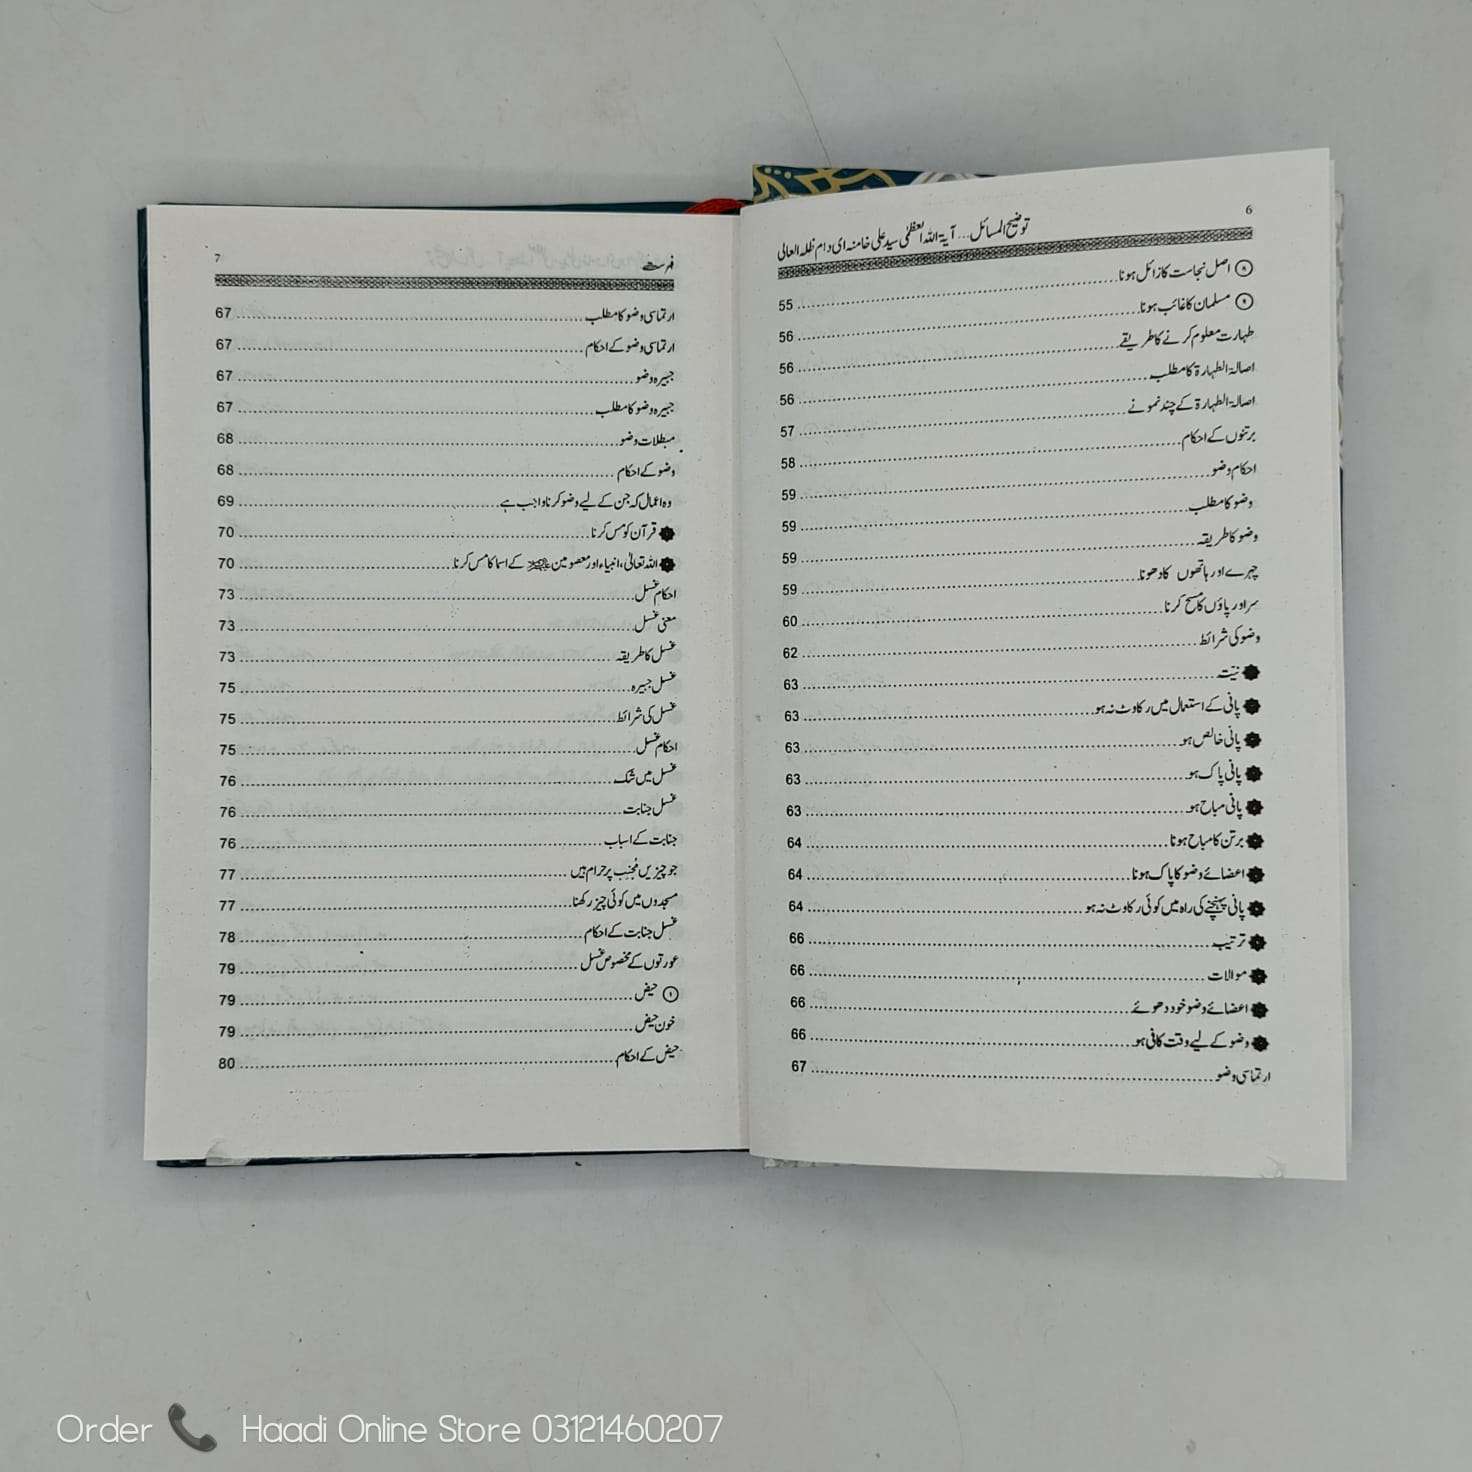 6
توضیح المسائل... آیۃ اللہ العظمٰی سید علی خامنہ ای دام ظلہ العالی
⑧ اصل نجاست کا زائل ہونا 55
⑨ مسلمان کا غائب ہونا 56
طہارت معلوم کرنے کا طریقے 56
اصالۃ الطہارۃ کا مطلب 56
اصالۃ الطہارۃ کے چند نمونے 57
برتنوں کے احکام 58
احکام وضو 59
وضو کا مطلب 59
وضو کا طریقہ 59
چہرے اور ہاتھوں کا دھونا 59
سر اور پاؤں کا مسح کرنا 60
وضو کی شرائط 62
نیّت 63
پانی کے استعمال میں رکاوٹ نہ ہو 63
پانی خالص ہو 63
پانی پاک ہو 63
پانی مباح ہو 63
برتن کا مباح ہونا 64
اعضائے وضو کا پاک ہونا 64
پانی پہنچنے کی راہ میں کوئی رکاوٹ نہ ہو 64
ترتیب 66
موالات 66
اعضائے وضو خود دھوئے 66
وضو کے لیے وقت کافی ہو 66
ارتماسی وضو 67
فہرست 7
ارتماسی وضو کا مطلب 67
ارتماسی وضو کے احکام 67
جبیرہ وضو 67
جبیرہ وضو کا مطلب 67
مبطلات وضو 68
وضو کے احکام 68
وہ اعمال کہ جن کے لیے وضو کرنا واجب ہے 69
قرآن کو مس کرنا 70
اللہ تعالیٰ، انبیاء اور معصومین کے اسما کا مس کرنا 70
احکام غسل 73
معنی غسل 73
غسل کا طریقہ 73
غسل جبیرہ 75
غسل کی شرائط 75
احکام غسل 75
غسل میں شک 76
غسل جنابت 76
جنابت کے اسباب 76
جو چیزیں مُجنِب پر حرام ہیں 77
مسجدوں میں کوئی چیز رکھنا 77
غسل جنابت کے احکام 78
عورتوں کے مخصوص غسل 79
① حیض 79
خون حیض 79
حیض کے احکام 80
Order Haadi Online Store 03121460207